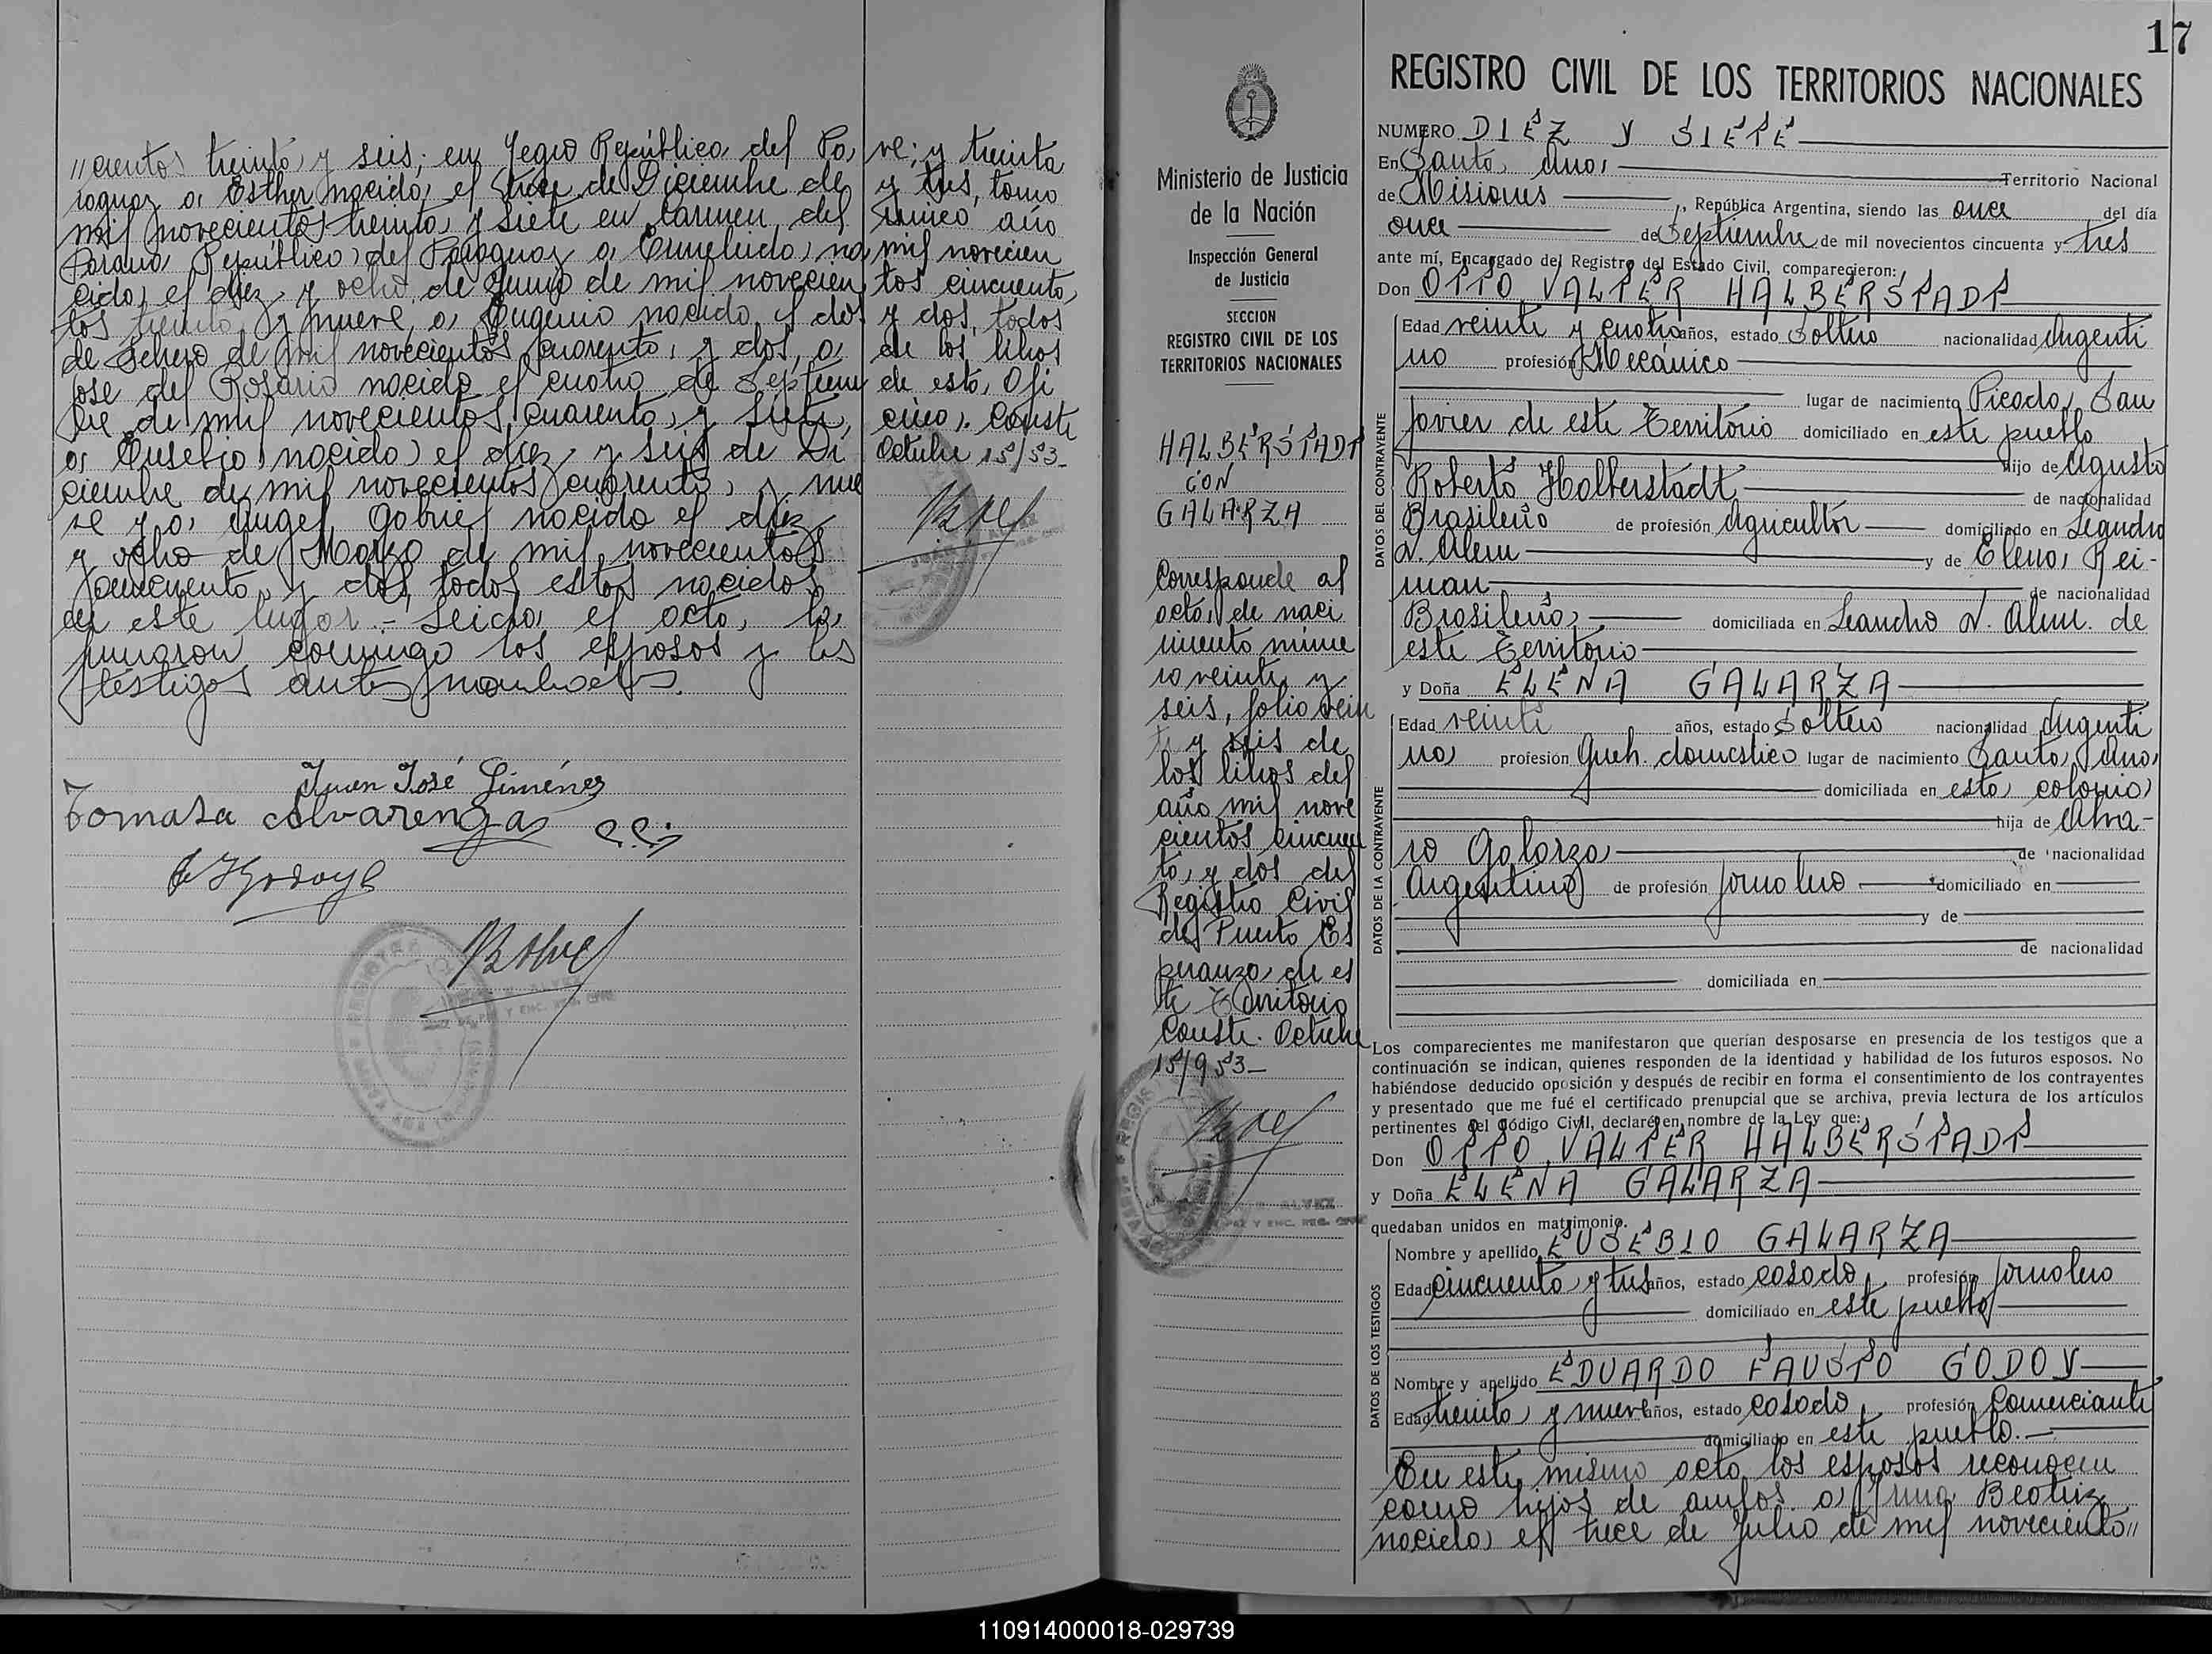 //cientos treinta y seis; en Yegro República del Pa,
raguay a Esther nacida el trece de Diciembre de
mil novecientos treinta y siete en Carmen del
Paraná República del Paraguay a Enmelinda, na
cida el diez y ocho de Junio de mil novecien
tos treinta y nueve, a Eugenio nacido el dos
de Febrero de mil novecientos cuarenta y dos, a
Jose del Rosario nacido el cuatro de Septiem
bre de mil novecientos cuarenta y siete,
a Eusebio nacido el diez y seis de Di
ciembre de mil novecientos cuarenta y nue
ve y a Angel Gabriel nacido el diez
y ocho de Marzo de mil novecientos
cincuenta y dos, todos estos nacidos
en este lugar.- Leida el acta, la
firmaron conmigo los esposos y los
testigos antes nombrados.
Juan José Giménez
Tomasa Alvarenga
E F Godoy
ve; y treinta
y tres, tomo
unico año
mil novecien
tos cincuenta
y dos, todos
de los libros
de esta Ofi
cina. Conste
Octubre 15/53-
17
Ministerio de Justicia
de la Nación
Inspección General
de Justicia
SECCION
REGISTRO CIVIL DE LOS
TERRITORIOS NACIONALES
HALBERSTADT
CON
GALARZA
Corresponde al
acta de naci
miento núme
ro veinte y
seis, folio vein
te y seis de
los libros del
año mil nove
cientos cincuen
ta y dos del
Registro Civil
de Puerto Es
peranza, de es
te Territorio
Conste. Octubre
15/953-
REGISTRO CIVIL DE LOS TERRITORIOS NACIONALES
NUMERO DIEZ Y SIETE
En Santa Ana, Territorio Nacional
de Misiones, República Argentina, siendo las once del día
once de Septiembre de mil novecientos cincuenta y tres
ante mí, Encargado del Registro del Estado Civil, comparecieron:
Don OTTO VALTER HALBERSTADT
DATOS DEL CONTRAYENTE
Edad veinte y cuatro años, estado Soltero nacionalidad Argenti
no profesión Mecánico
lugar de nacimiento Picada San
Javier de este Territorio domiciliado en este pueblo
hijo de Agusto
Roberto Halberstadt de nacionalidad
Brasileño de profesión Agricultor domiciliado en Leandro
N. Alem y de Elena Rei-
man de nacionalidad
Brasileña, domiciliada en Leandro N. Alem. de
este Territorio
y Doña ELENA GALARZA
DATOS DE LA CONTRAYENTE
Edad veinte años, estado Soltera nacionalidad Argenti
na profesión Queh. domestico lugar de nacimiento Santa Ana,
domiciliada en esta colonia
hija de Alva-
ro Galarza de nacionalidad
Argentino de profesión Jornalero domiciliado en
y de
de nacionalidad
domiciliada en
Los comparecientes me manifestaron que querían desposarse en presencia de los testigos que a
continuación se indican, quienes responden de la identidad y habilidad de los futuros esposos. No
habiéndose deducido oposición y después de recibir en forma el consentimiento de los contrayentes
y presentado que me fué el certificado prenupcial que se archiva, previa lectura de los artículos
pertinentes del Código Civil, declaré en nombre de la Ley que:
Don OTTO VALTER HALBERSTADT
y Doña ELENA GALARZA
quedaban unidos en matrimonio.
DATOS DE LOS TESTIGOS
Nombre y apellido EUSEBIO GALARZA
Edad cincuenta y tres años, estado casado, profesión Jornalero
domiciliado en este pueblo
Nombre y apellido EDUARDO FAUSTO GODOY
Edad treinta y nueve años, estado casado, profesión Comerciante
domiciliado en este pueblo.-
En este mismo acto los esposos reconocen
como hijos de ambos a Juna Beatriz
nacida el trece de Julio de mil noveciento//
110914000018-029739